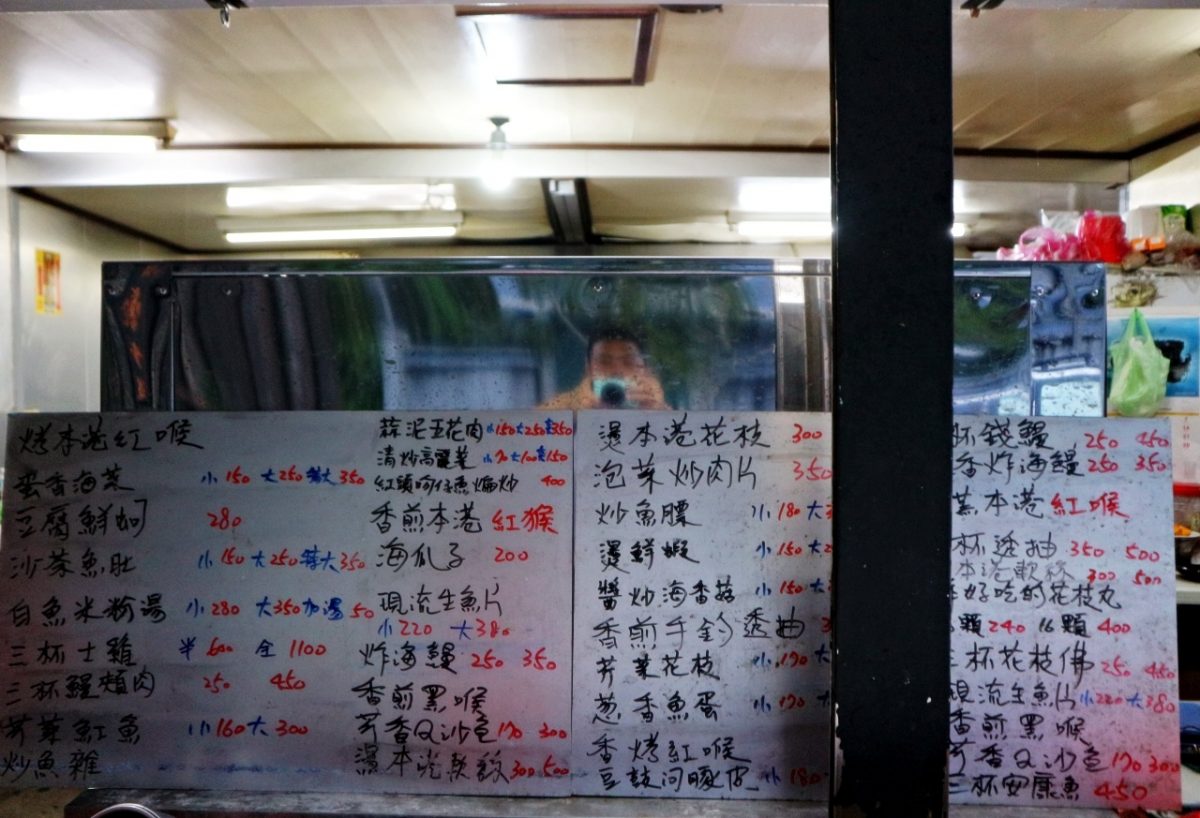 烤本港紅喉
蛋香海菜 小150 大250 特大350
豆腐鮮蚵 280
沙茶魚肚 小150 大250 特大350
白魚米粉湯 小280 大350 加湯50
三杯土雞 半600 全1100
三杯鰻頰肉 250 450
芥茉魟魚 小160 大300
炒魚雜
蒜泥五花肉 小150 大250 350
清炒高麗菜 小70 大100 150
紅鬚吻仔魚煸炒 400
香煎本港紅猴
海瓜子 200
現流生魚片
小220 大380
炸海鰻 250 350
香煎黑喉
芹香Q沙魚 170 300
燙本港軟絲 300 500
燙本港花枝 300
泡菜炒肉片 350
炒魚膘 小180 大
燙鮮蝦 小150 大2
醬炒海香菇 小150 大
香煎手釣透抽
芥茉花枝 小170 大
蔥香魚蛋 小170
香烤紅喉
豆鼓 小180
杯錢鰻 250 450
香炸海鰻 250 350
蒸本港紅喉
杯透抽 350 500
本港軟絲 300 500
好吃的花枝丸
顆240 16顆400
三杯花枝佛 250 450
現流生魚片 小220 大380
香煎黑喉
芹香Q沙魚 170 300
三杯安康魚 450